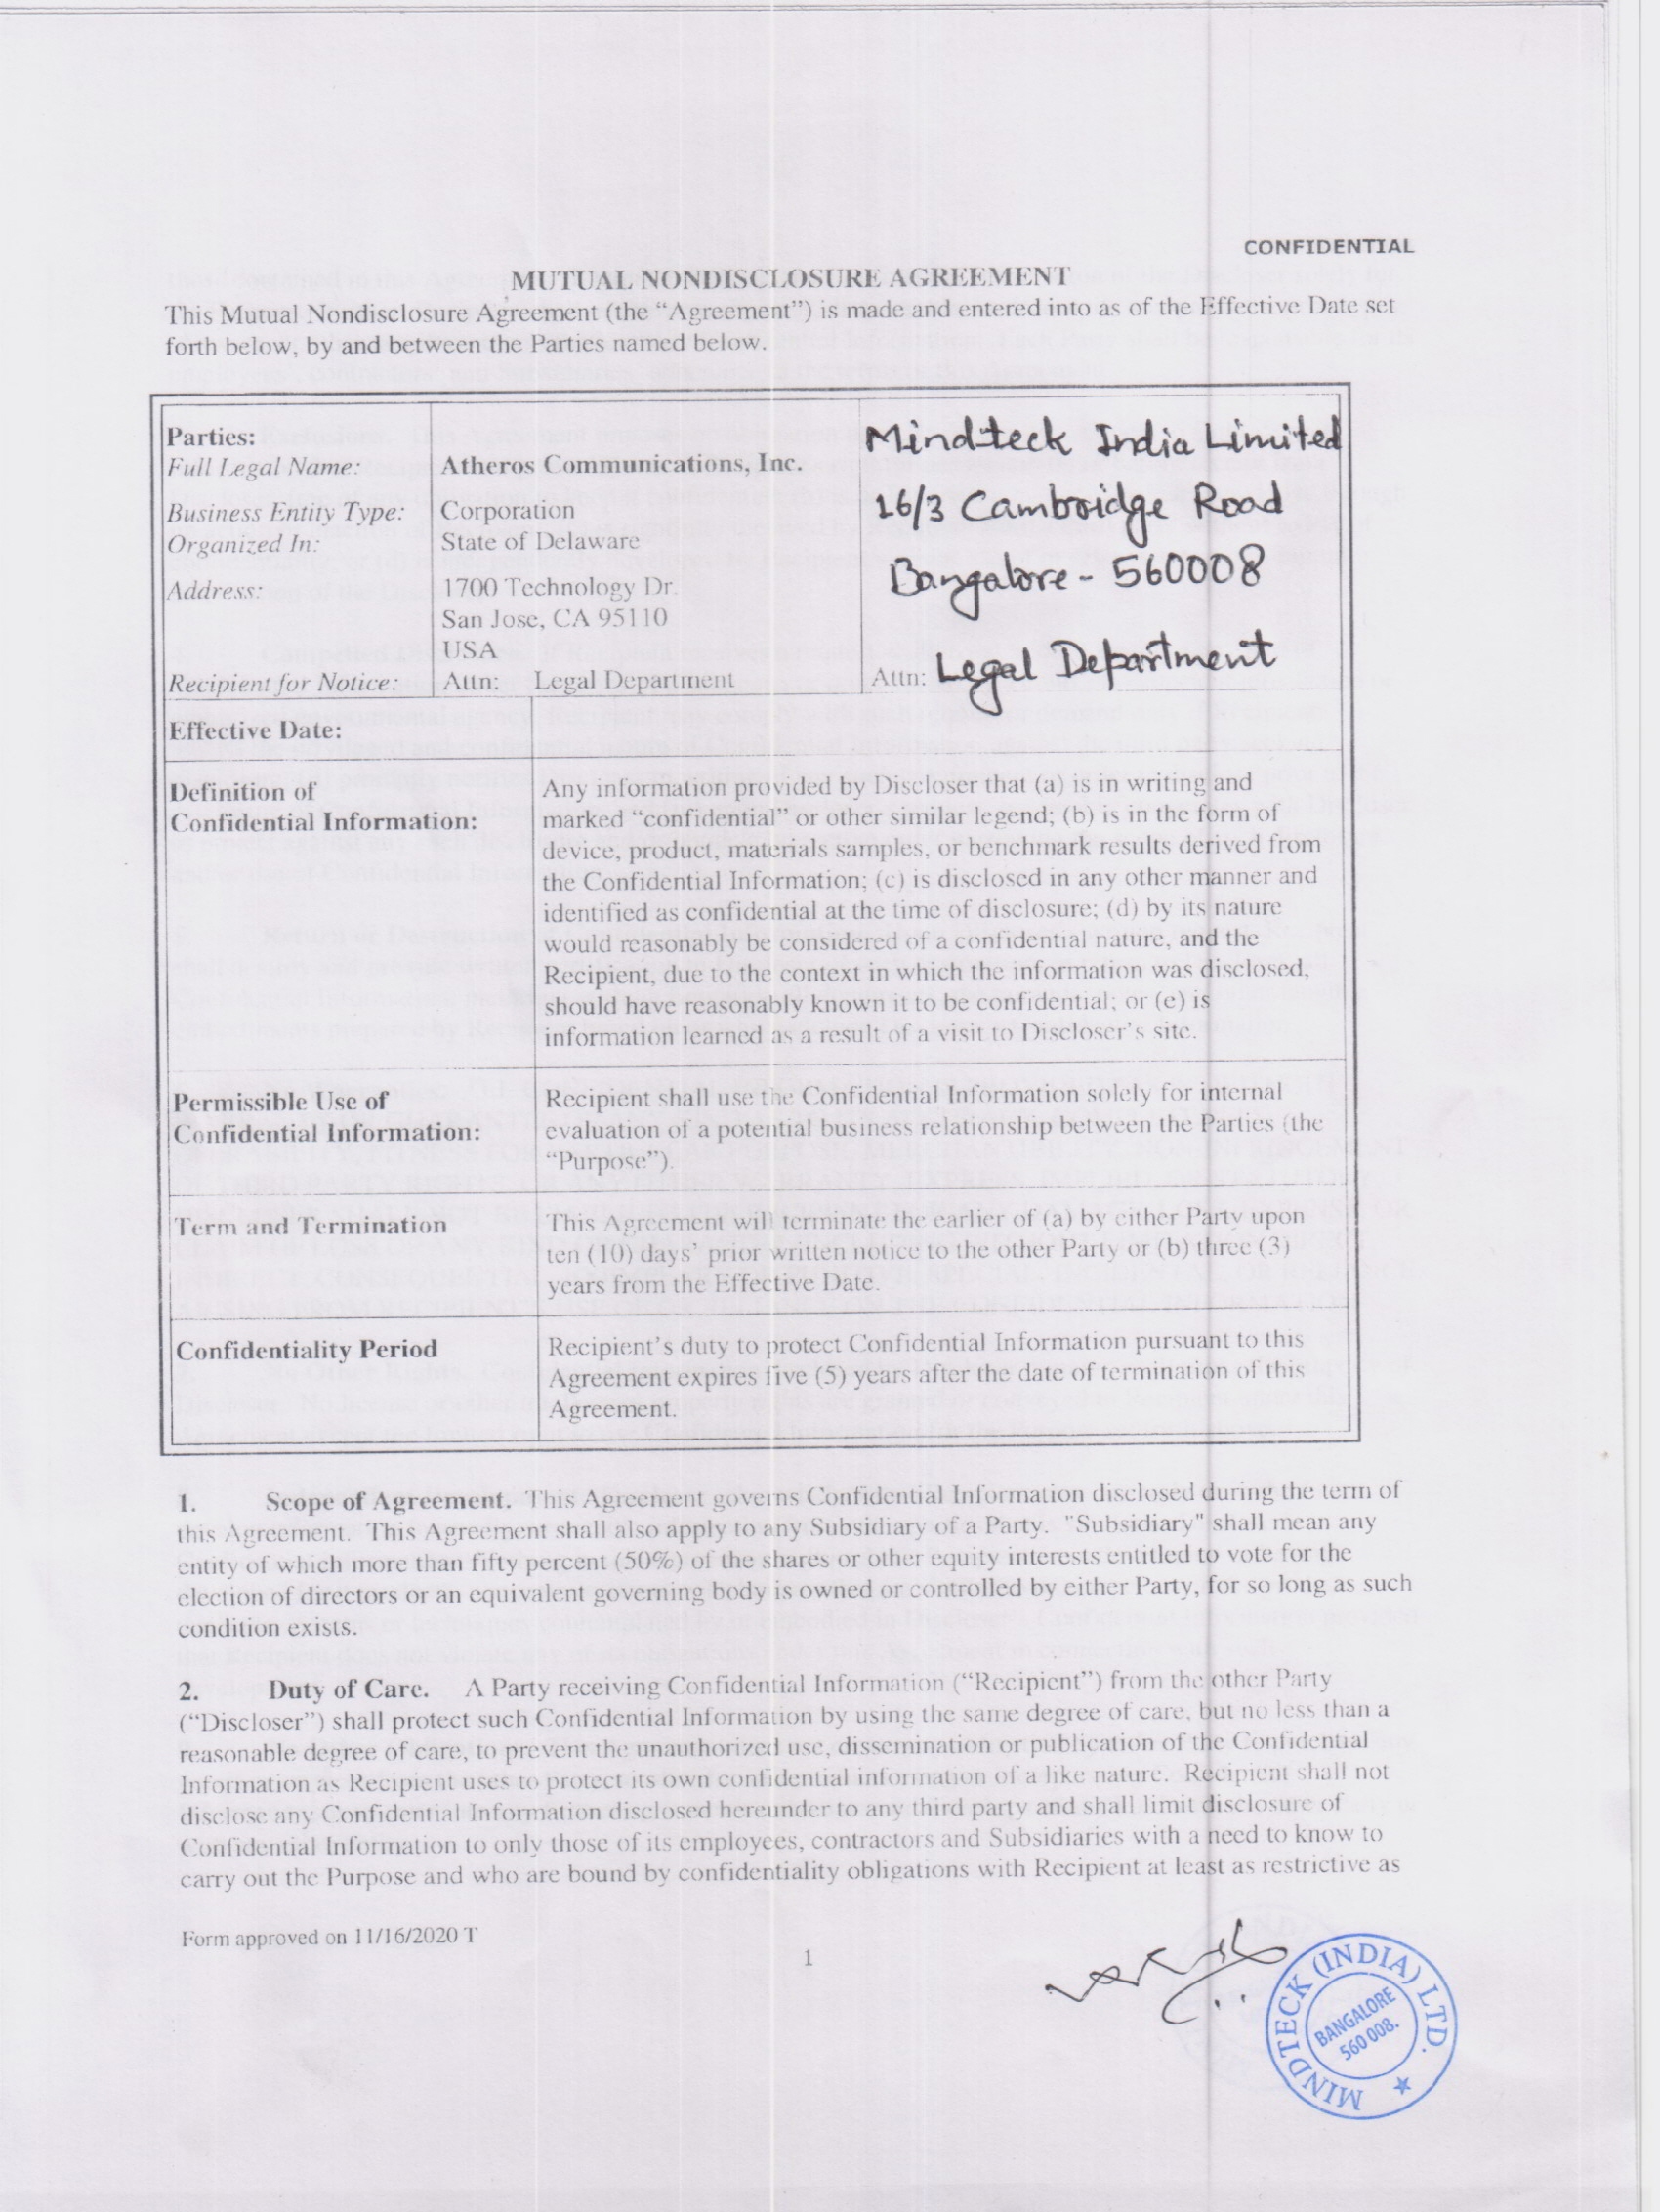 CONFIDENTIAL
MUTUAL NONDISCLOSURE AGREEMENT
This Mutual Nondisclosure Agreement (the “Agreement”) is made and entered into as of the Effective Date set
forth below, by and between the Parties named below.
Parties:
Full Legal Name: Atheros Communications, Inc. Mindteck India Limited
Business Entity Type: Corporation 16/3 Cambridge Road
Organized In: State of Delaware
Address: 1700 Technology Dr. Bangalore - 560008
San Jose, CA 95110
USA
Recipient for Notice: Attn: Legal Department Attn: Legal Department
Effective Date:
Definition of
Confidential Information:
Any information provided by Discloser that (a) is in writing and
marked “confidential” or other similar legend; (b) is in the form of
device, product, materials samples, or benchmark results derived from
the Confidential Information; (c) is disclosed in any other manner and
identified as confidential at the time of disclosure; (d) by its nature
would reasonably be considered of a confidential nature, and the
Recipient, due to the context in which the information was disclosed,
should have reasonably known it to be confidential; or (e) is
information learned as a result of a visit to Discloser’s site.
Permissible Use of
Confidential Information:
Recipient shall use the Confidential Information solely for internal
evaluation of a potential business relationship between the Parties (the
“Purpose”).
Term and Termination
This Agreement will terminate the earlier of (a) by either Party upon
ten (10) days’ prior written notice to the other Party or (b) three (3)
years from the Effective Date.
Confidentiality Period
Recipient’s duty to protect Confidential Information pursuant to this
Agreement expires five (5) years after the date of termination of this
Agreement.
1. Scope of Agreement. This Agreement governs Confidential Information disclosed during the term of
this Agreement. This Agreement shall also apply to any Subsidiary of a Party. "Subsidiary" shall mean any
entity of which more than fifty percent (50%) of the shares or other equity interests entitled to vote for the
election of directors or an equivalent governing body is owned or controlled by either Party, for so long as such
condition exists.
2. Duty of Care. A Party receiving Confidential Information (“Recipient”) from the other Party
(“Discloser”) shall protect such Confidential Information by using the same degree of care, but no less than a
reasonable degree of care, to prevent the unauthorized use, dissemination or publication of the Confidential
Information as Recipient uses to protect its own confidential information of a like nature. Recipient shall not
disclose any Confidential Information disclosed hereunder to any third party and shall limit disclosure of
Confidential Information to only those of its employees, contractors and Subsidiaries with a need to know to
carry out the Purpose and who are bound by confidentiality obligations with Recipient at least as restrictive as
Form approved on 11/16/2020 T
1
MINDTECK (INDIA) LTD.
BANGALORE
560 008.